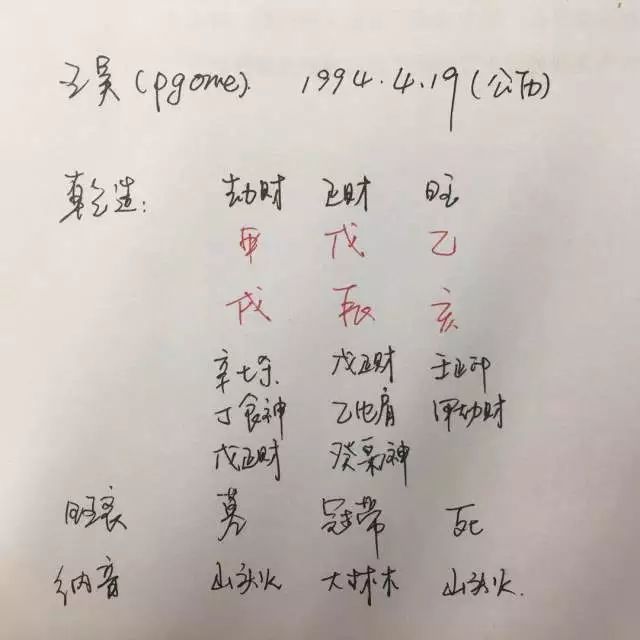 王昊(pgone). 1994.4.19(公历)
乾造: 劫财 正财 日主
甲 戊 乙
戌 辰 亥
辛七杀 戊正财 壬正印
丁食神 乙比肩 甲劫财
戊正财 癸枭神
旺衰 墓 冠带 死
纳音 山头火 大林木 山头火.